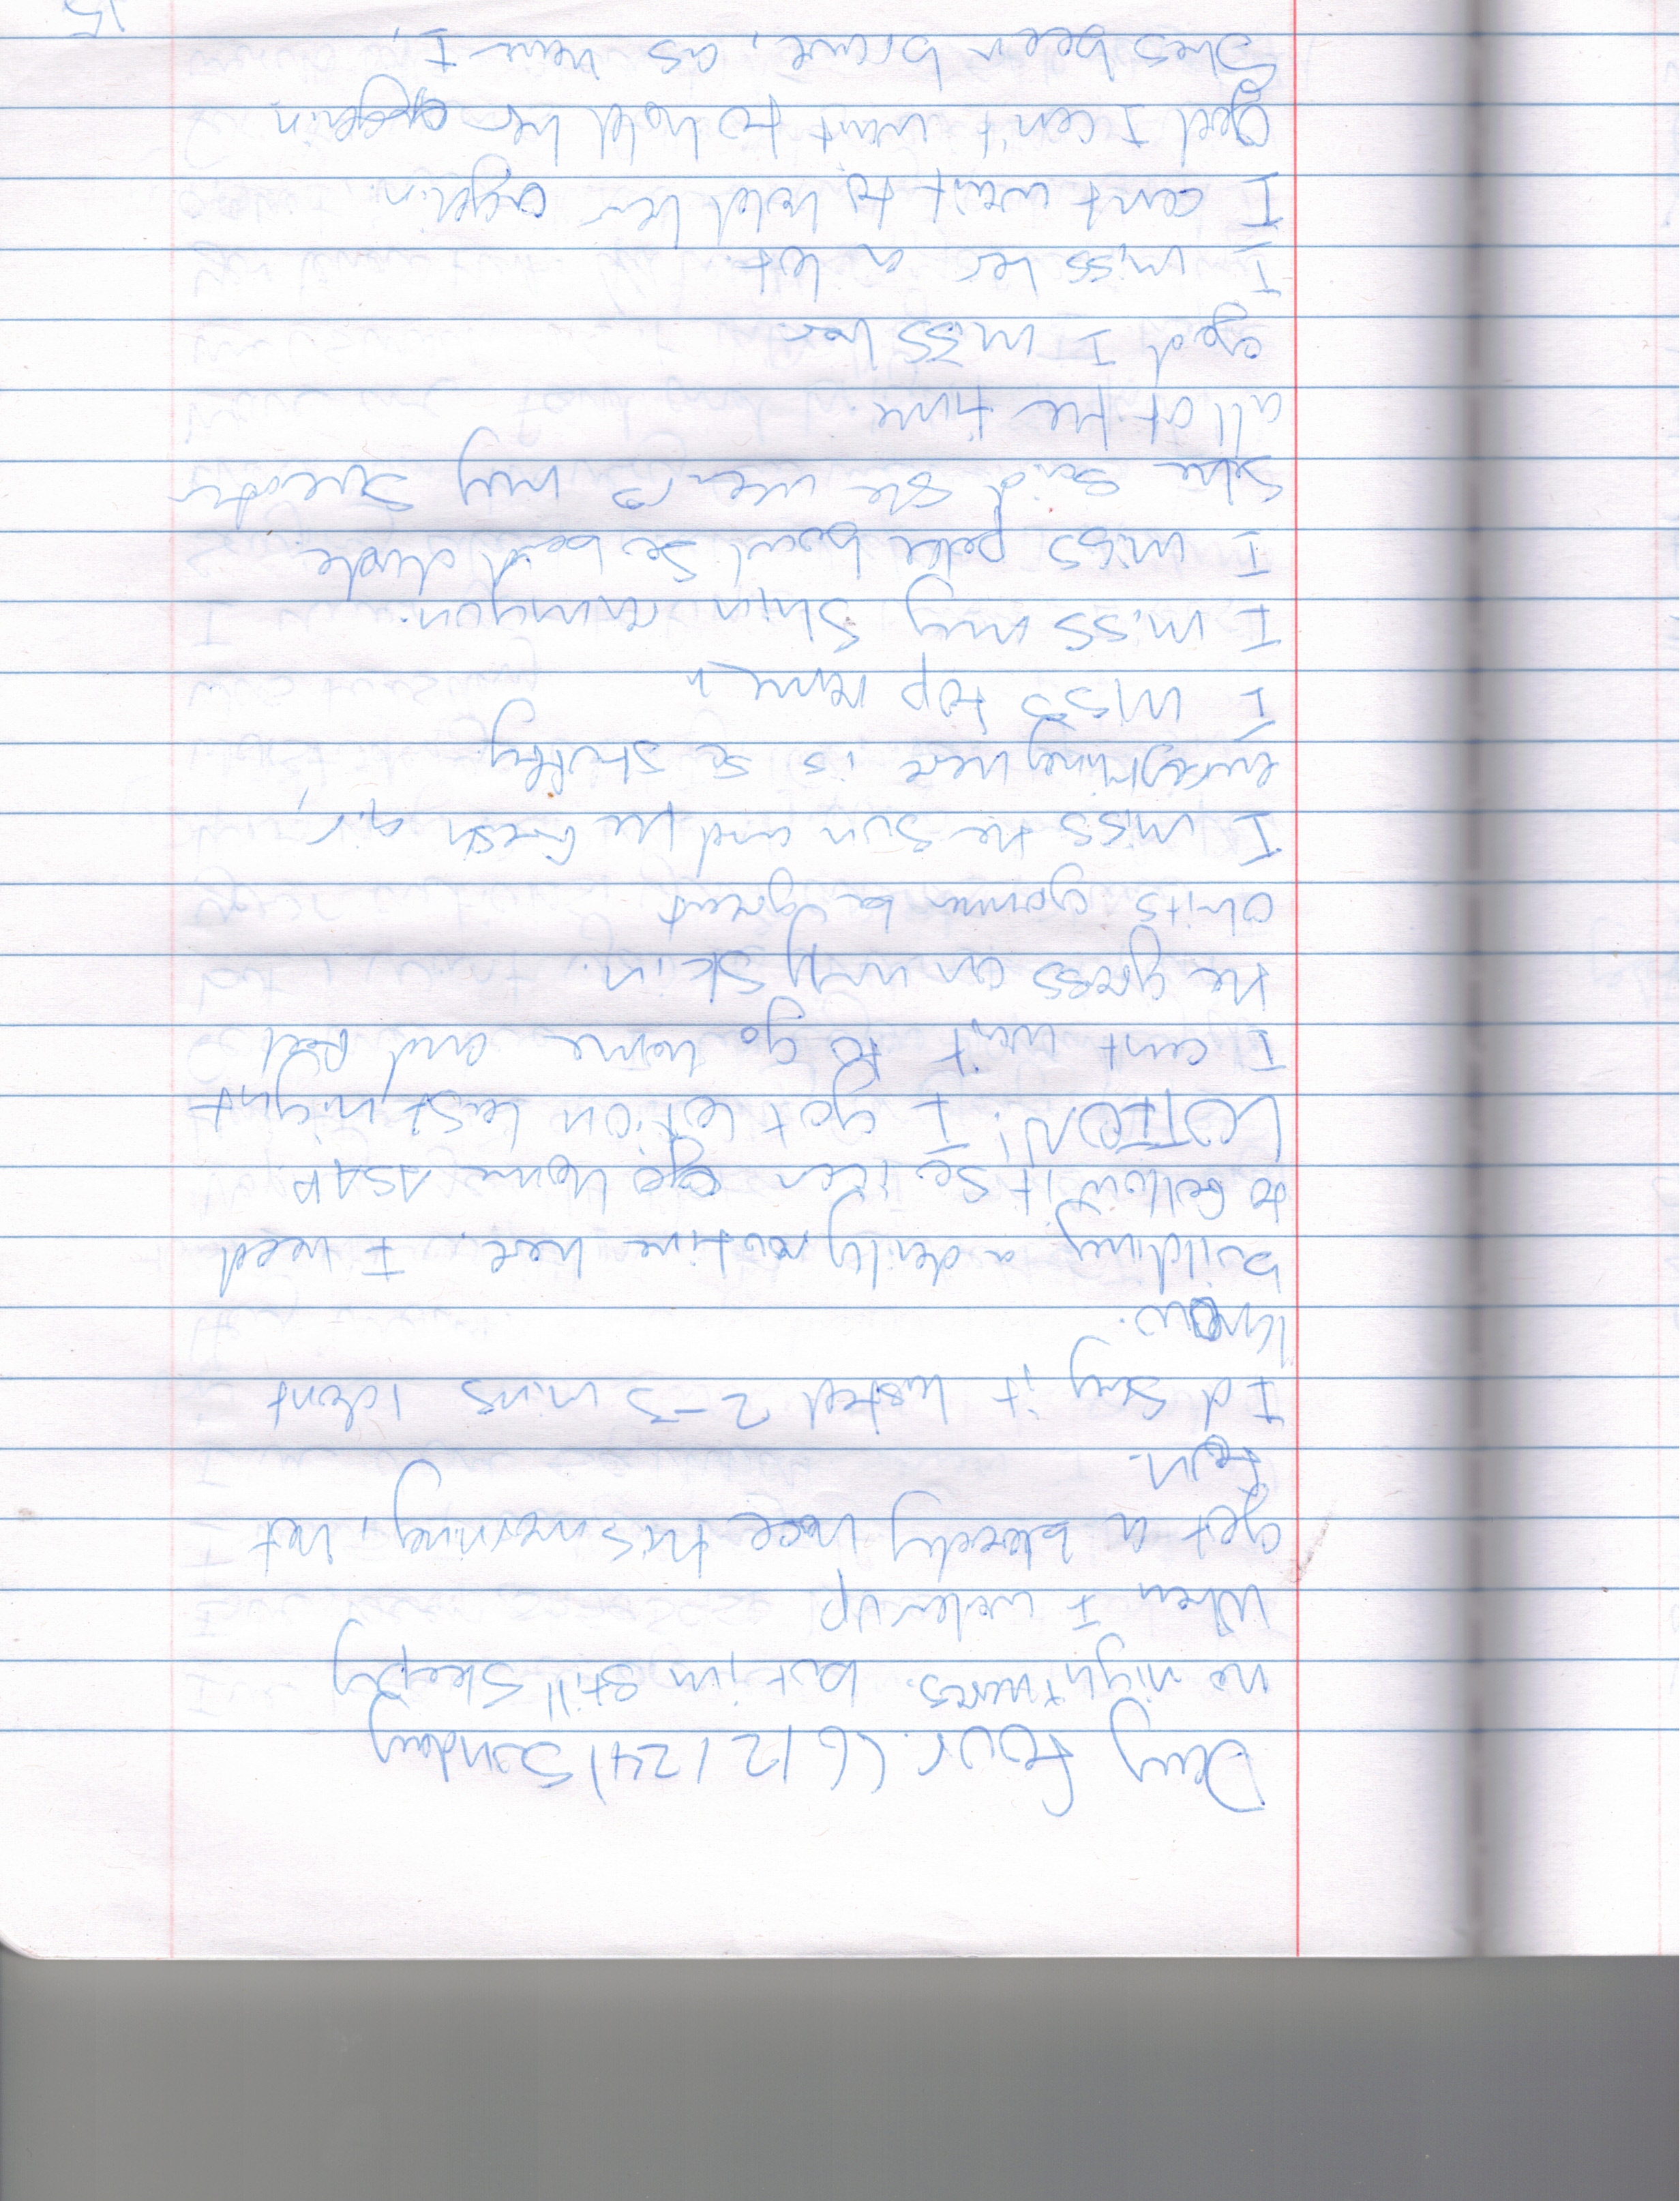 Day four (6/2/24) Sunday
no nightmares. but im still sleepy
when I woke up
got a bloody nose this morning, not
fun.
I'd say it lasted 2-3 mins I dont
know.
building a daily routine here, I need
to follow it so I can go home ASAP.
LOTION! I got lotion last night
I cant wait to go home and feel
the grass on my skin.
oh its gonna be great
I miss the sun and the fresh air,
everything here is so stuffy
I miss top ramen
I miss my shin ramyon.
I miss poke bowl so bad dude
She said she wears my sweater
all of the time.
god I miss her
I miss her a lot.
I cant wait to hold her again.
God I can't wait to hold her again
Shes been brave, as have I,
15